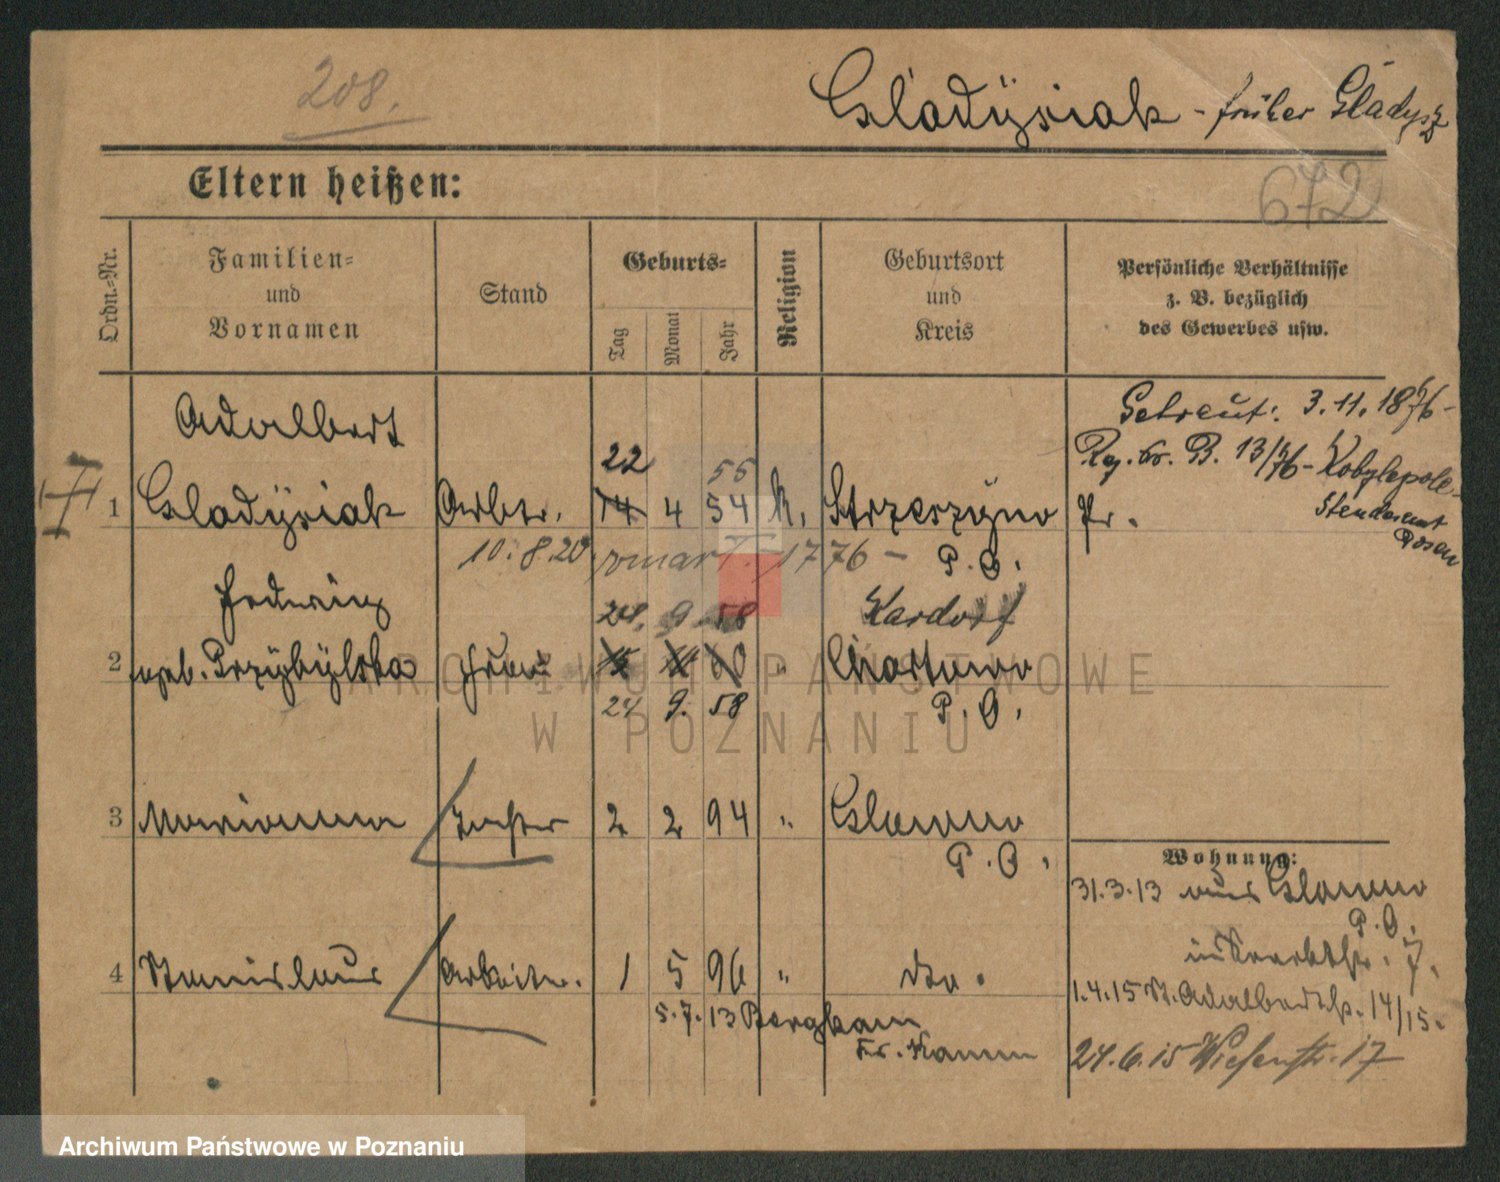 208.
Gladÿsiak - früher Gladysz
672
Eltern heißen:
Ordn.-Nr.
Familien-
und
Vornamen
Stand
Geburts-
Tag
Monat
Jahr
Religion
Geburtsort
und
Kreis
Persönliche Verhältnisse
z. B. bezüglich
des Gewerbes usw.
Getraut: 3.11.1876-
Reg. Nr. B. 13/76 - Kobylepole-
Standesamt
Posen
Adalbert
22 56
1 Gladÿsiak Arbtr. 14 4 54 k. Strzeszÿno Pr.
10.8.20 1776 - P. O.
Hedwig
24. 9. 58 Kardorf
2 geb. Przÿbÿlska Frau 15 " Chartowo
24 9. 58 P. O.
3 Marianna Tochter 2 2 94 " Glowno
P. O.
4 Stanislaus Arbeiter. 1 5 96 " dto.
5.7.13 Bergkamen
Kr. Hamm
Wohnung:
31.3.13 aus Glowno
P. O.
7.
1.4.15 St. Adalbertstr. 14/15.
24.6.15 Wiesenstr. 17
ARCHIWUM PAŃSTWOWE
W POZNANIU
Archiwum Państwowe w Poznaniu